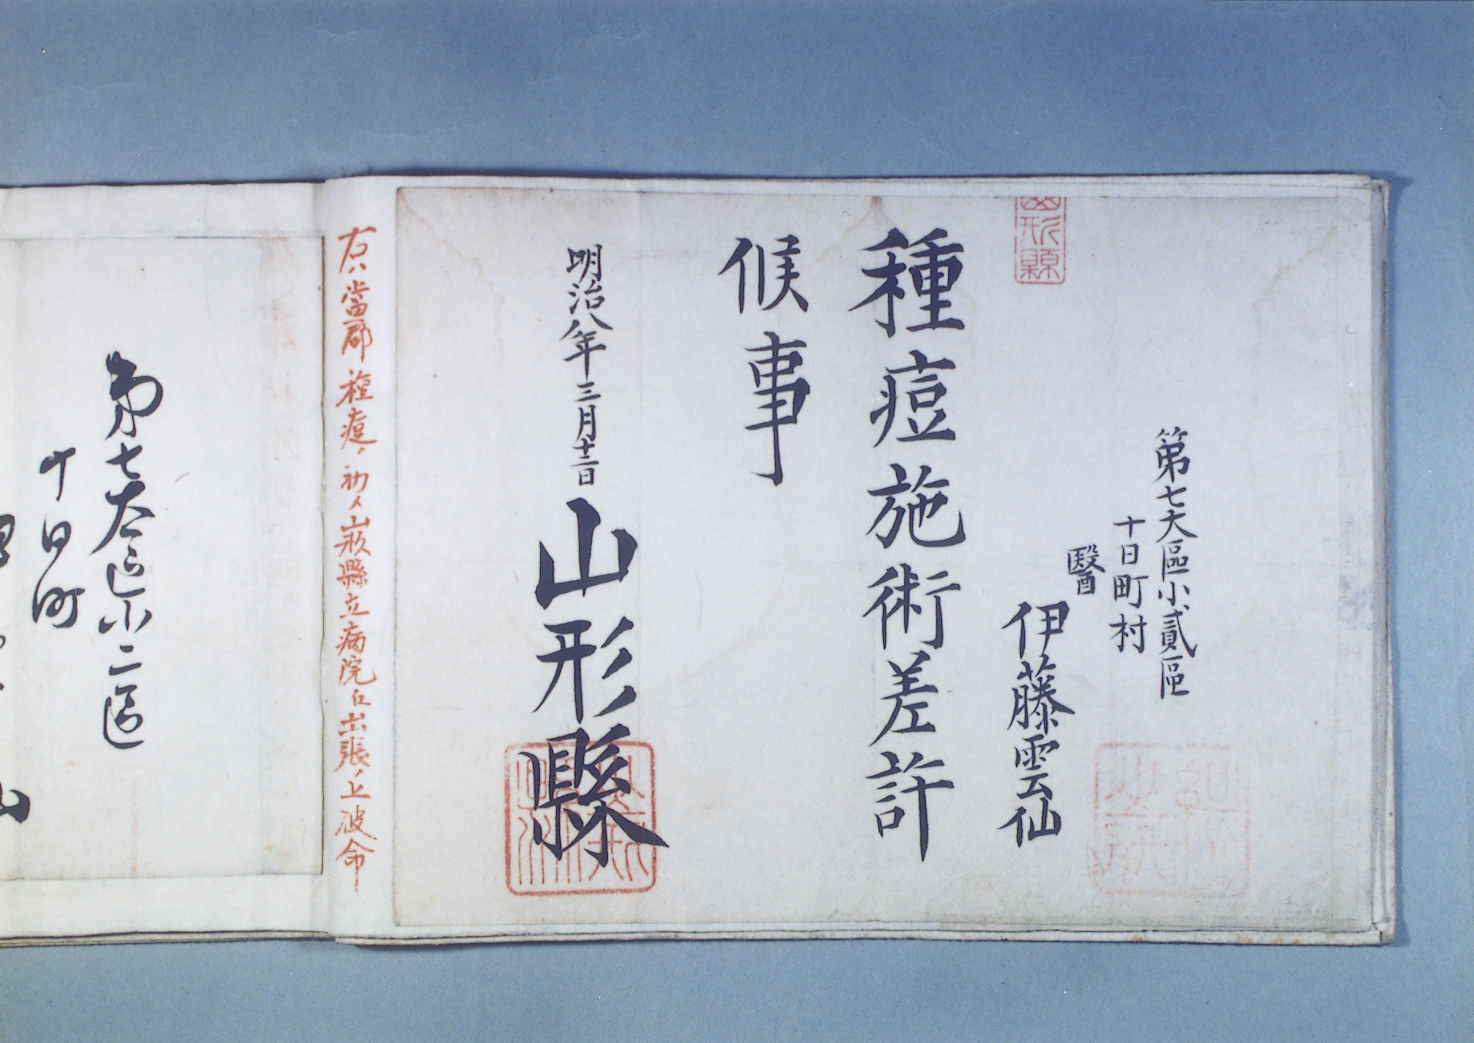 山形縣
第七大區小貳區
十日町村
醫
伊藤雲仙
種痘施術差許
候事
明治八年三月十二日
山形縣
右ハ當郡種痘ノ初メ山形縣立病院江出張ノ上被命
第七大区小二區
十日町